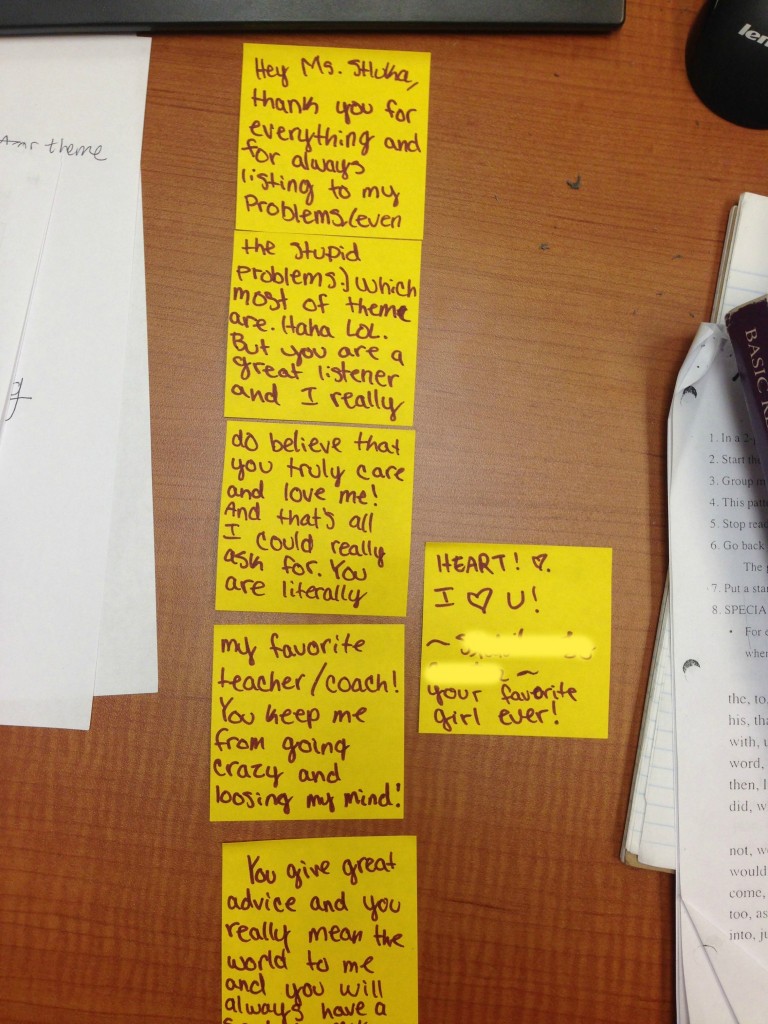 Amr theme
len
Hey Ms. Stluka,
thank you for
everything and
for always
listing to my
Problems.(even
the Stupid
problems.) which
most of theme
are. Haha LOL.
But you are a
great listener
and I really
do believe that
you truly care
and love me!
And that's all
I could really
ask for. You
are literally
my favorite
teacher/coach!
You keep me
from going
crazy and
loosing my mind!
You give great
advice and you
really mean the
world to me
and you will
always have a
HEART! ♡.
I ♡ U!
~
~
your favorite
girl ever!
BASIC
1. In a 2-
2. Start the
3. Group
4. This
5. Stop
6. Go back
The
7. Put a
8. SPECIA
• For
the, to,
his,
with,
word,
then,
did,
not,
would
come,
too, as
into,